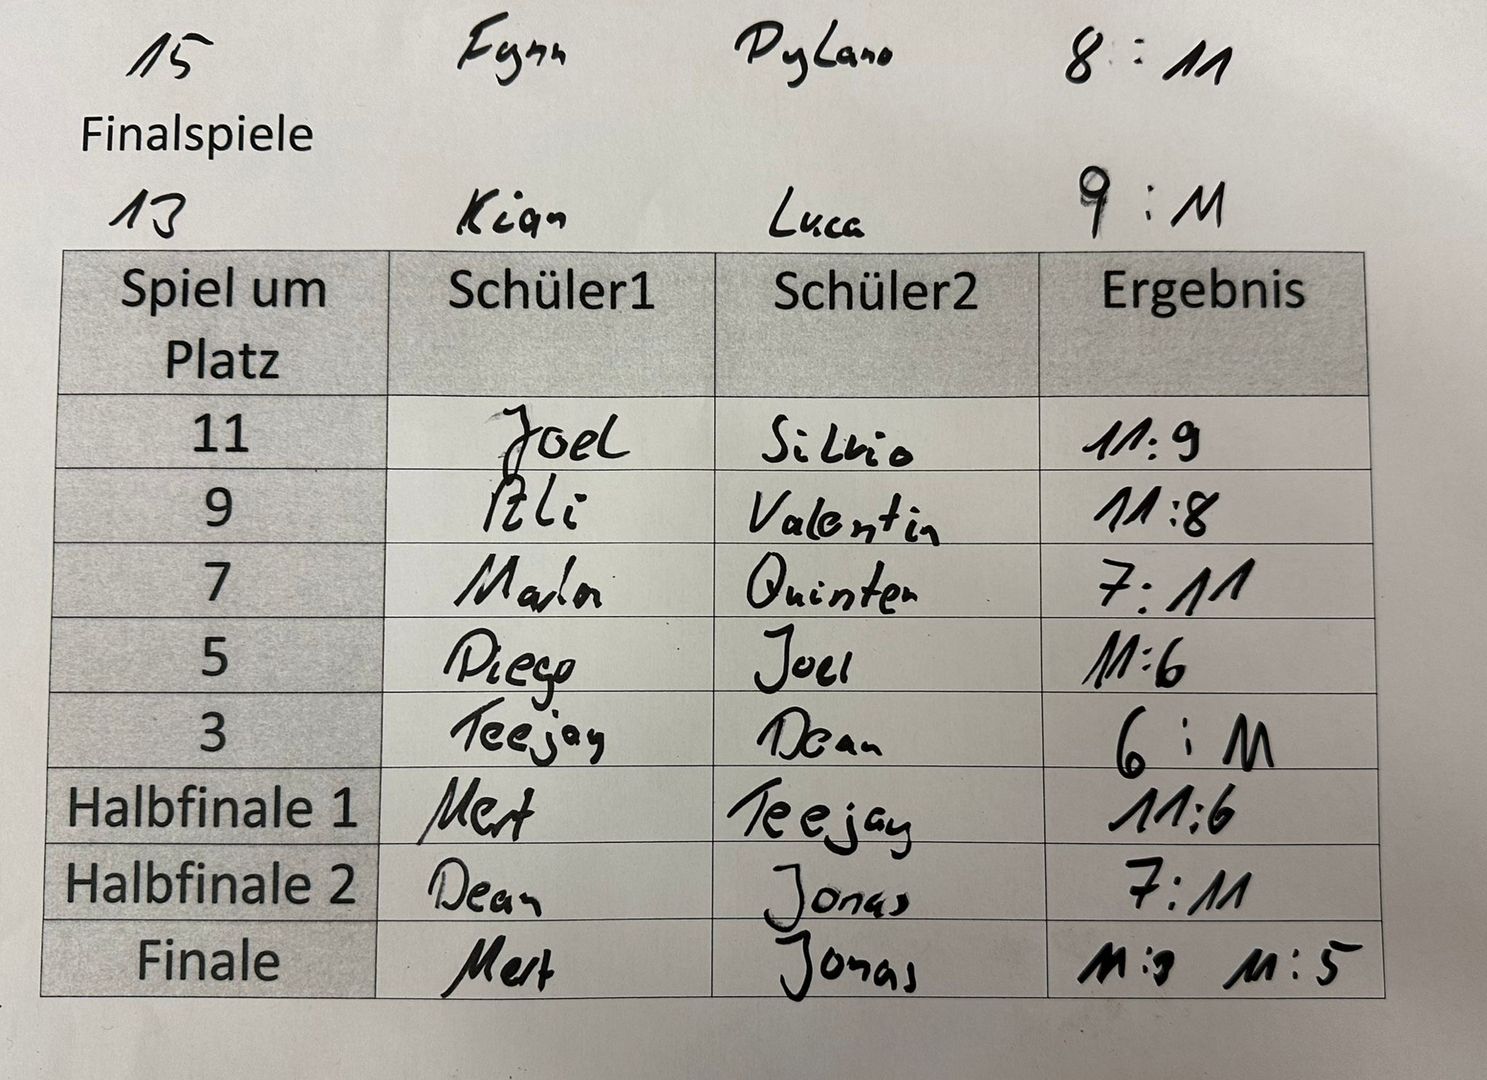 15 Fynn DyLano 8 : 11
Finalspiele
13 Kian Luca 9 : 11
Spiel um Platz Schüler1 Schüler2 Ergebnis
11 Joel Silvio 11:9
9 Ali Valentin 11:8
7 Marlon Quinten 7:11
5 Diego Joel 11:6
3 Teejay Dean 6:11
Halbfinale 1 Mert Teejay 11:6
Halbfinale 2 Dean Jonas 7:11
Finale Mert Jonas 11:9 11:5